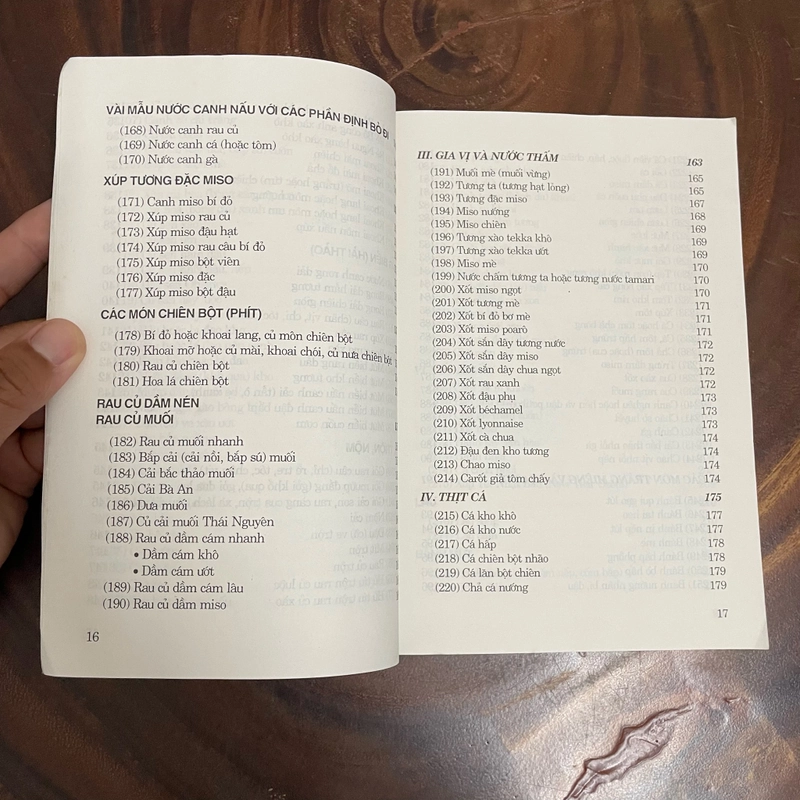 VÀI MẪU NƯỚC CANH NẤU VỚI CÁC PHẦN ĐỊNH BỎ ĐI
(168) Nước canh rau củ
(169) Nước canh cá (hoặc tôm)
(170) Nước canh gà
XÚP TƯƠNG ĐẶC MISO
(171) Canh miso bí đỏ
(172) Xúp miso rau củ
(173) Xúp miso đậu hạt
(174) Xúp miso rau câu bí đỏ
(175) Xúp miso bột viên
(176) Xúp miso đặc
(177) Xúp miso bột đậu
CÁC MÓN CHIÊN BỘT (PHÍT)
(178) Bí đỏ hoặc khoai lang, củ món chiên bột
(179) Khoai mỡ hoặc củ mài, khoai chói, củ nưa chiên bột
(180) Rau củ chiên bột
(181) Hoa lá chiên bột
RAU CỦ DẦM NÉN
RAU CỦ MUỐI
(182) Rau củ muối nhanh
(183) Bắp cải (cải nồi, bắp sú) muối
(184) Cải bắc thảo muối
(185) Cải Bà An
(186) Dưa muối
(187) Củ cải muối Thái Nguyên
(188) Rau củ dầm cám nhanh
• Dầm cám khô
• Dầm cám ướt
(189) Rau củ dầm cám lâu
(190) Rau củ dầm miso
16
III. GIA VỊ VÀ NƯỚC THẤM 163
(191) Muối mè (muối vừng) 165
(192) Tương ta (tương hạt lỏng) 165
(193) Tương đặc miso 167
(194) Miso nướng 168
(195) Miso chiên 169
(196) Tương xào tekka khô 169
(197) Tương xào tekka ướt 169
(198) Miso mè 170
(199) Nước chấm tương ta hoặc tương nước tamari 170
(200) Xốt miso ngọt 170
(201) Xốt tương mè 171
(202) Xốt bí đỏ bơ mè 171
(203) Xốt miso poarô 171
(204) Xốt sắn dây tương nước 172
(205) Xốt sắn dây miso 172
(206) Xốt sắn dây chua ngọt 172
(207) Xốt rau xanh 172
(208) Xốt đậu phụ 173
(209) Xốt béchamel 173
(210) Xốt lyonnaise 173
(211) Xốt cà chua 174
(212) Đậu đen kho tương 174
(213) Chao miso 174
(214) Carôt giả tôm chấy 174
IV. THỊT CÁ 175
(215) Cá kho khô 177
(216) Cá kho nước 177
(217) Cá hấp 178
(218) Cá chiên bột nhão 178
(219) Cá lăn bột chiên 179
(220) Chả cá nướng 179
17